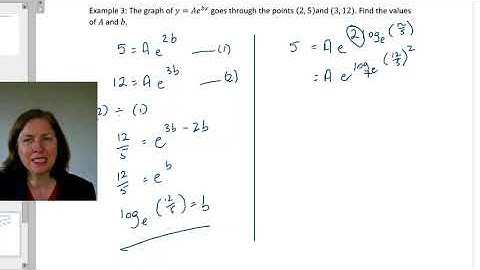 Example 3: The graph of y = Ae^{bx} goes through the points (2, 5)and (3, 12). Find the values
of A and b.
5 = A e^{2b} —(1)
12 = A e^{3b} —(2)
2) ÷ (1)
12/5 = e^{3b - 2b}
12/5 = e^{b}
log_e (12/5) = b
5 = A e^{2 log_e (12/5)}
= A e^{log_e (12/5)^2}